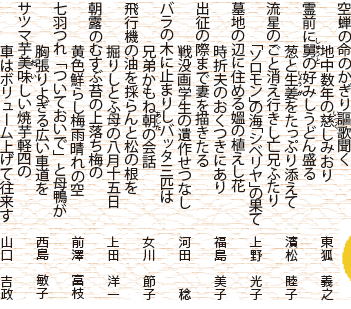 空蝉の命のかぎり謳歌聞く
地中数年の慈しみおり
東狐 義之
霊前に舅の好みしうどん盛る
葱と生姜をたっぷり添えて
濱松 睦子
流星のごと消え行きし亡兄ふたり
「ソロモンの海」「シベリヤ」の果て
上野 光子
墓地の辺に住める媼の植えし花
時折夫のおくつきにあり
福島 美子
出征の際まで妻を描きたる
戦没画学生の遺作せつなし
河田 稔
バラの木に止まりしバッタ二匹は
兄弟かもね朝の会話
女川 節子
飛行機の油を採らんと松の根を
掘りしとふ母の八月十五日
上田 洋一
朝露のむすぶ苔の上落ち梅の
黄色鮮らし梅雨晴れの空
前澤 富枝
七羽つれ「ついておいで」と母鴨が
胸張りよぎる広い車道を
西島 敏子
サツマ芋美味しい焼芋軽四の
車はボリューム上げて往来す
山口 吉政